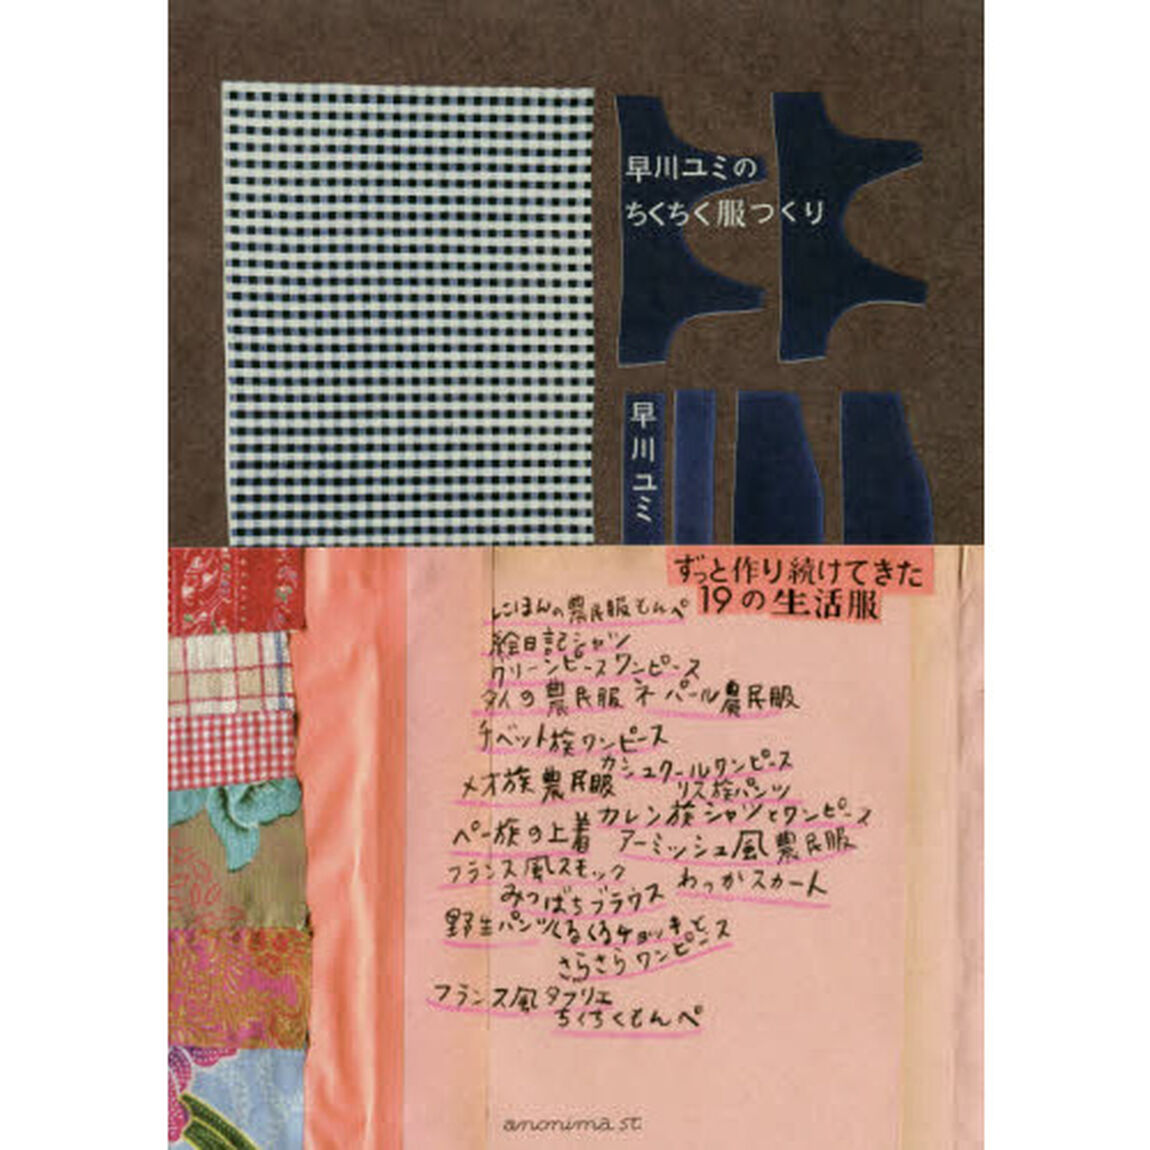 早川ユミの
ちくちく服つくり
早川ユミ
ずっと作り続けてきた
19の生活服
にほんの農民服もんぺ
絵日記シャツ
グリーンピースワンピース
タイの農民服 ネパール農民服
チベット族ワンピース
カシュクールワンピース
メオ族農民服 リス族パンツ
カレン族シャツとワンピース
ペー族の上着 アーミッシュ風農民服
フランス風スモック わっかスカート
みつばちブラウス
野生パンツ くるくるチョッキとス
さらさらワンピース
フランス風タブリエ
ちくちくもんぺ
anonima st.